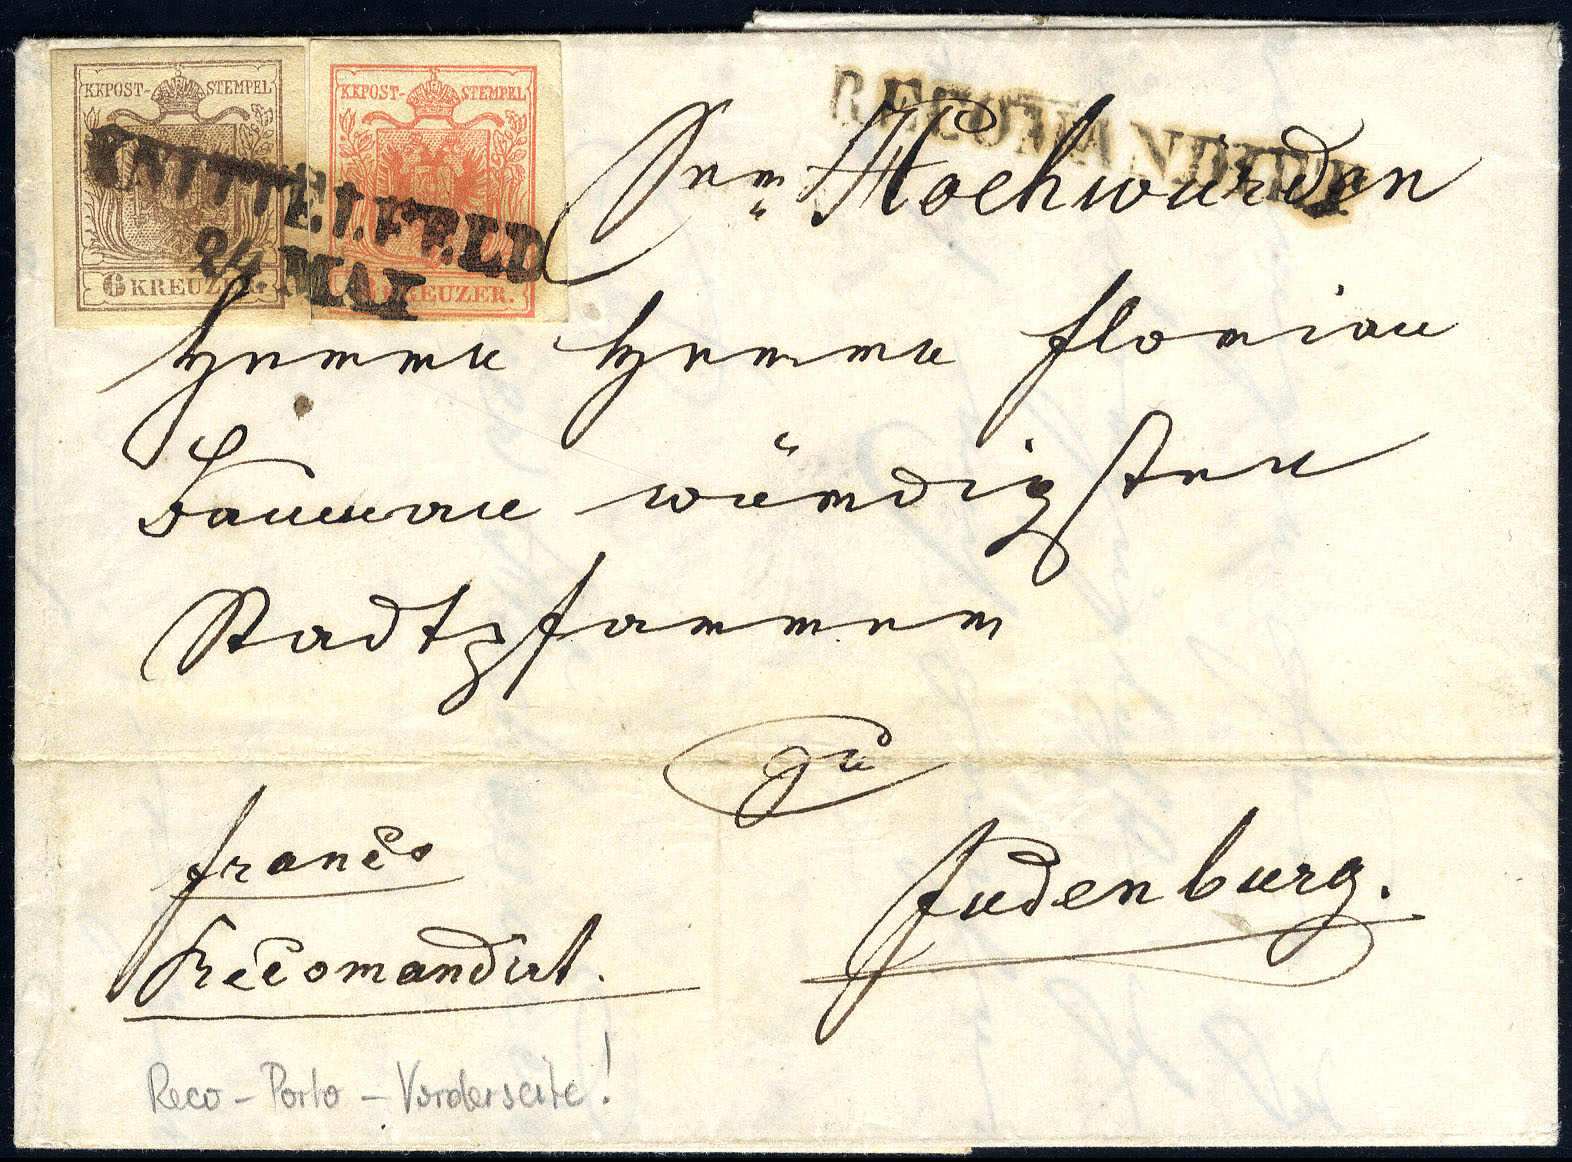 KKPOST- STEMPEL
KKPOST- STEMPEL
RECOMANDIRT
KNITTELFELD
24. MAI
6 KREUZER.
KREUZER.
Sr. Hochwürden
Herrn Herrn Florian
würdigsten
Stadtpfarrer
zu
Judenburg.
franco
Recomandirt.
Reco - Porto - Vorderseite!